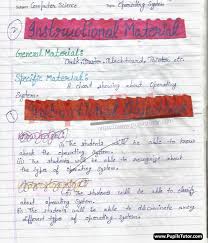 Computer Science
Operating System
2) Instructional Material
General Materials:
Chalk, Duster, Blackboards, Pointer etc.
Specific Material:
A chart showing about Operating
System.
Instructional
(i) The students will be able to know
about the operating system.
(ii) The students will be able to recognize about
the types of operating system.
(i) The students will be able to classify
about operating system.
(ii) The students will be able to discriminate among
different types of operating systems.
www.PupilsTutor.com